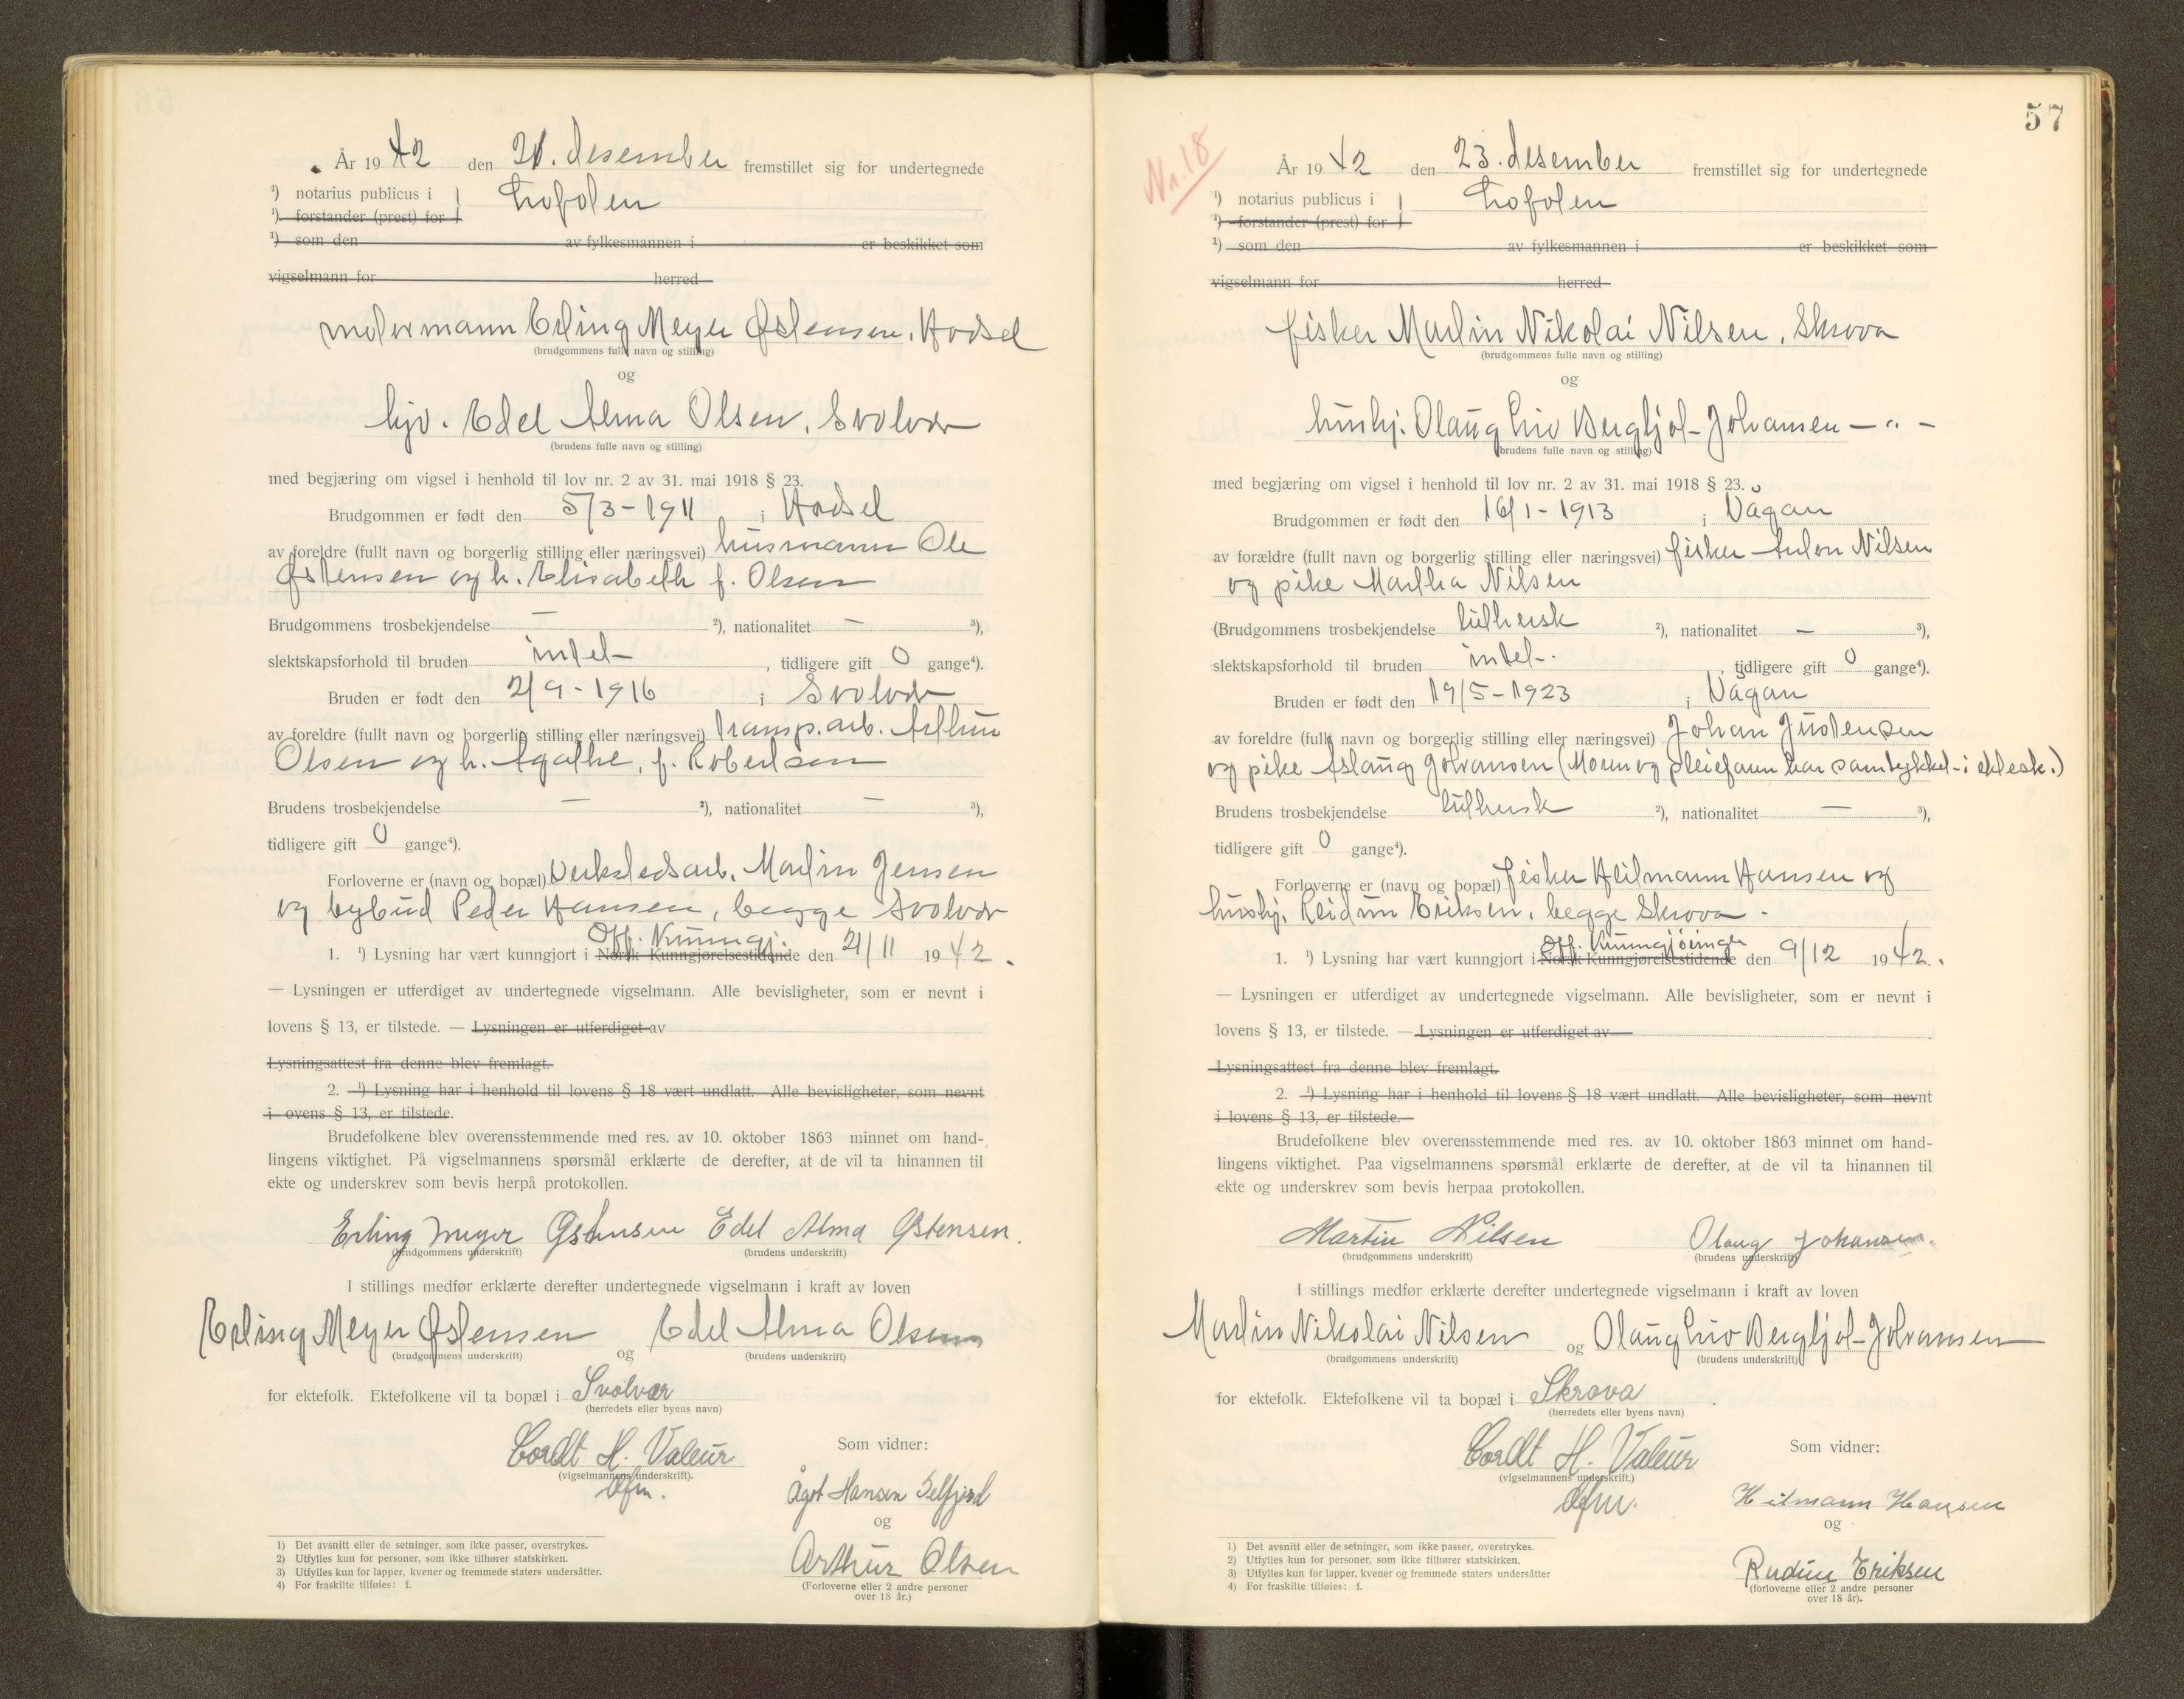 År 1942 den 21. desember fremstillet sig for undertegnede
¹) notarius publicus i } Lofoten
¹) forstander (prest) for }
¹) som den av fylkesmannen i er beskikket som
vigselmann for herred
Erling Meyer Østensen, Hadsel
(brudgommens fulle navn og stilling)
og
hjv. Edel Alma Olsen, Svolvær
(brudens fulle navn og stilling)
med begjæring om vigsel i henhold til lov nr. 2 av 31. mai 1918 § 23.
Brudgommen er født den 5/3-1911 i Hadsel
av foreldre (fullt navn og borgerlig stilling eller næringsvei) husmann Ole
Østensen og h. Elisabeth f. Olsen
Brudgommens trosbekjendelse — ²), nationalitet — ³),
slektskapsforhold til bruden intet , tidligere gift 0 gange⁴).
Bruden er født den 2/9-1916 i Svolvær
av foreldre (fullt navn og borgerlig stilling eller næringsvei) transp.arb. Arthur
Olsen og h. Agathe, f. Robertsen
Brudens trosbekjendelse — ²), nationalitet — ³),
tidligere gift 0 gange⁴).
Forloverne er (navn og bopæl) verkstedsarb. Martin Jensen
og bybud Peder Hansen, begge Svolvær
Off. Kunngj.
1. ¹) Lysning har vært kunngjort i Norsk Kunngjørelsestidende den 21/11 1942.
— Lysningen er utferdiget av undertegnede vigselmann. Alle bevisligheter, som er nevnt i
lovens § 13, er tilstede. — Lysningen er utferdiget av
Lysningsattest fra denne blev fremlagt.
2. ¹) Lysning har i henhold til lovens § 18 vært undlatt. Alle bevisligheter, som nevnt
i ovens § 13, er tilstede.
Brudefolkene blev overensstemmende med res. av 10. oktober 1863 minnet om hand-
lingens viktighet. På vigselmannens spørsmål erklærte de derefter, at de vil ta hinannen til
ekte og underskrev som bevis herpå protokollen.
Erling Meyer Østensen Edel Alma Østensen.
(brudgommens underskrift) (brudens underskrift)
I stillings medfør erklærte derefter undertegnede vigselmann i kraft av loven
Erling Meyer Østensen og Edel Alma Olsen
(brudgommens underskrift) (brudens underskrift)
for ektefolk. Ektefolkene vil ta bopæl i Svolvær
(herredets eller byens navn)
Cordt H. Valeur
(vigselmannens underskrift).
Som vidner:
Ågot Hansen Selfjord
og
Arthur Olsen
(Forloverne eller 2 andre personer
over 18 år.)
1) Det avsnitt eller de setninger, som ikke passer, overstrykes.
2) Utfylles kun for personer, som ikke tilhører statskirken.
3) Utfylles kun for lapper, kvener og fremmede staters undersåtter.
4) For fraskilte tilføies: f.
57
Nr. 18
År 1942 den 23. desember fremstillet sig for undertegnede
¹) notarius publicus i } Lofoten
¹) forstander (prest) for }
¹) som den av fylkesmannen i er beskikket som
vigselmann for herred
fisker Martin Nikolai Nilsen, Skrova
(brudgommens fulle navn og stilling)
og
hushj. Olaug Liv Bergljot Johansen — " —
(brudens fulle navn og stilling)
med begjæring om vigsel i henhold til lov nr. 2 av 31. mai 1918 § 23.
Brudgommen er født den 16/1-1913 i Vågan
av forældre (fullt navn og borgerlig stilling eller næringsvei) fisker Anton Nilsen
og pike Martha Nilsen
(Brudgommens trosbekjendelse luthersk ²), nationalitet — ³),
slektskapsforhold til bruden intet. , tidligere gift 0 gange⁴).
Bruden er født den 19/5-1923 i Vågan
av foreldre (fullt navn og borgerlig stilling eller næringsvei) Johan Justensen
og pike Aslaug Johansen (Moren og pleiefaren har samtykket i ektesk.)
Brudens trosbekjendelse luthersk ²), nationalitet — ³),
tidligere gift 0 gange⁴).
Forloverne er (navn og bopæl) fisker Heilmann Hansen og
hushj. Reidun Eriksen, begge Skrova.
Off. Kunngjøringer
1. ¹) Lysning har vært kunngjort i Norsk Kunngjørelsestidende den 9/12 1942.
— Lysningen er utferdiget av undertegnede vigselmann. Alle bevisligheter, som er nevnt i
lovens § 13, er tilstede. — Lysningen er utferdiget av
Lysningsattest fra denne blev fremlagt.
2. ¹) Lysning har i henhold til lovens § 18 vært undlatt. Alle bevisligheter, som nevnt
i lovens § 13, er tilstede.
Brudefolkene blev overensstemmende med res. av 10. oktober 1863 minnet om hand-
lingens viktighet. Paa vigselmannens spørsmål erklærte de derefter, at de vil ta hinannen til
ekte og underskrev som bevis herpaa protokollen.
Martin Nilsen Olaug Johansen.
(brudgommens underskrift) (brudens underskrift)
I stillings medfør erklærte derefter undertegnede vigselmann i kraft av loven
Martin Nikolai Nilsen og Olaug Liv Bergljot Johansen
(brudgommens underskrift) (brudens underskrift)
for ektefolk. Ektefolkene vil ta bopæl i Skrova
(herredets eller byens navn)
Cordt H. Valeur
(vigselmannens underskrift.)
Som vidner:
Heilmann Hansen
og
Reidun Eriksen
(forloverne eller 2 andre personer
over 18 år).
1) Det avsnitt eller de setninger, som ikke passer, overstrykes.
2) Utfylles kun for personer, som ikke tilhører statskirken.
3) Utfylles kun for lapper, kvener og fremmede staters undersåtter
4) For fraskilte tilføies: f.